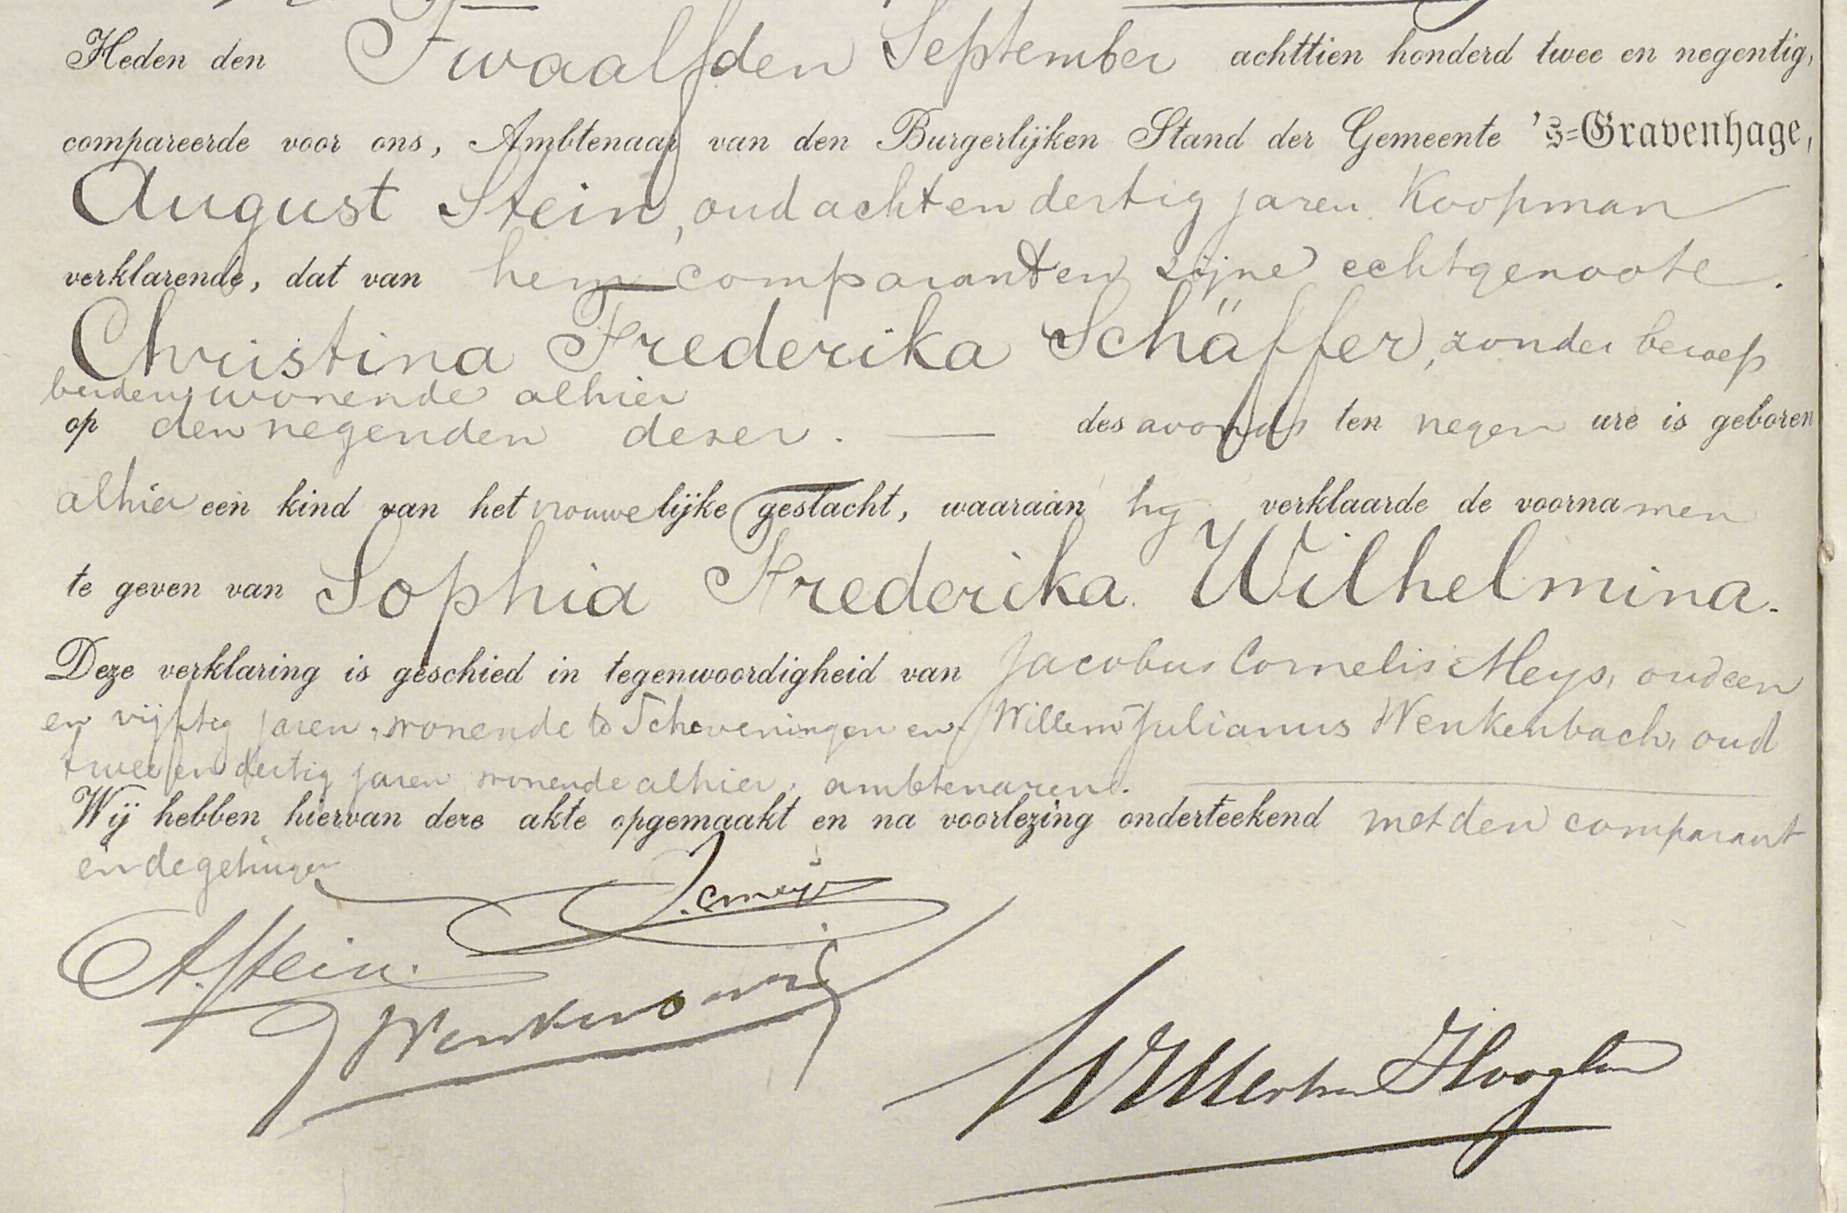 Heden den Twaalfden September achttien honderd twee en negentig,
compareerde voor ons, Ambtenaar van den Burgerlijken Stand der Gemeente 's=Gravenhage,
August Stein, oud acht en dertig jaren Koopman
verklarende, dat van hem comparant en zijne echtgenoote.
Christina Frederika Schäffer, zonder beroep
beiden wonende alhier
op den negenden dezer. des avonds ten negen ure is geboren
alhier een kind van het vrouwelijke geslacht, waaraan hij verklaarde de voornamen
te geven van Sophia Frederika Wilhelmina.
Deze verklaring is geschied in tegenwoordigheid van Jacobus Cornelis Meys, oud een
en vijftig jaren, wonende te Scheveningen en Willem Julianus Wenkenbach, oud
twee en dertig jaren wonende alhier, ambtenaren.
Wij hebben hiervan deze akte opgemaakt en na voorlezing onderteekend met den comparant
en de getuigen
J.C. Meys
A. Stein.